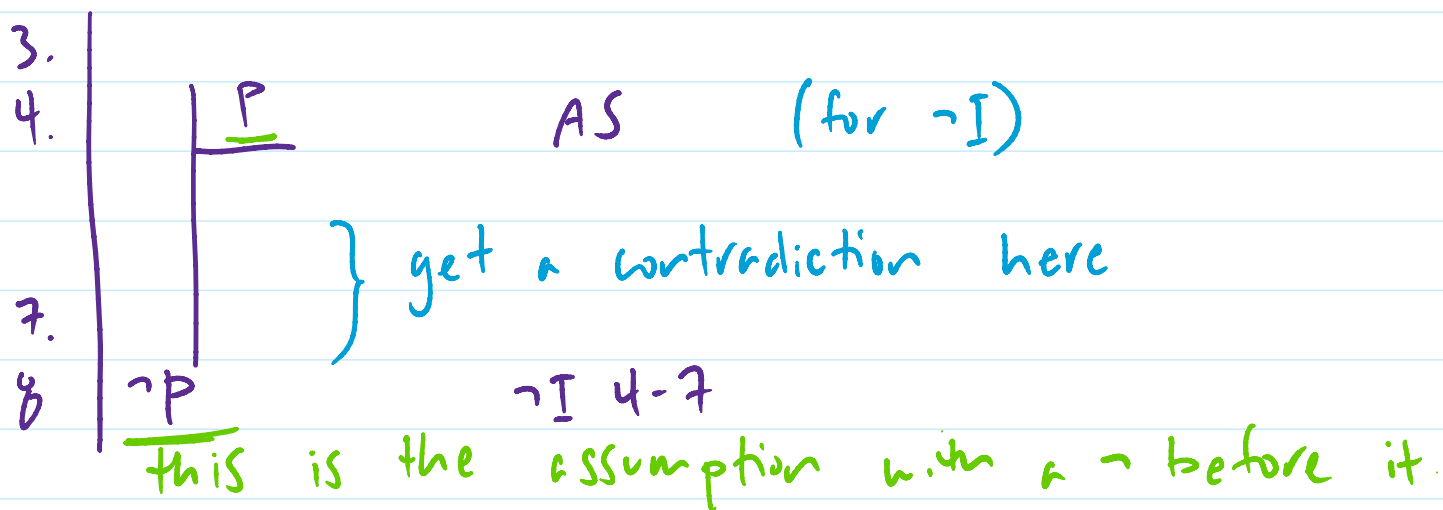 3.
4. P AS (for ¬I)
get a contradiction here
7.
8 ¬P ¬I 4-7
this is the assumption with a ¬ before it.